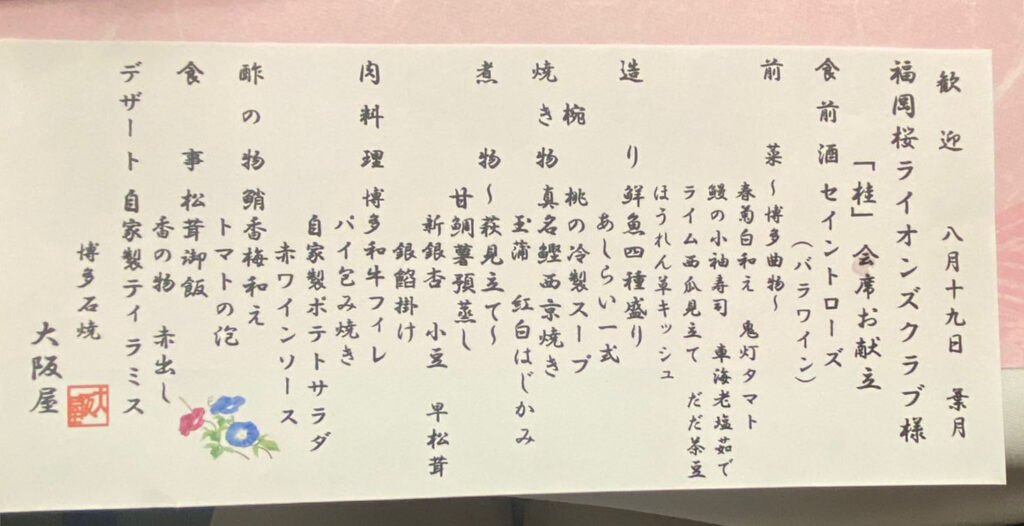 歓迎 八月十九日 葉月
福岡桜ライオンズクラブ様
「桂」会席お献立
食前酒 セイントローズ
(バラワイン)
前菜 ~博多曲物~
春菊白和え 鬼灯タマト
鰻の小袖寿司 車海老塩茹で
ライム西瓜見立て だだ茶豆
ほうれん草キッシュ
造り 鮮魚四種盛り
あしらい一式
椀 桃の冷製スープ
焼き物 真名鰹西京焼き
玉蒲 紅白はじかみ
煮物 ~萩見立て~
甘鯛薯預蒸し
新銀杏 小豆 早松茸
銀餡掛け
肉料理 博多和牛フィレ
パイ包み焼き
自家製ポテトサラダ
赤ワインソース
酢の物 鮹香梅和え
トマトの泡
食事 松茸御飯
香の物 赤出し
デザート 自家製ティラミス
博多石焼
大阪屋